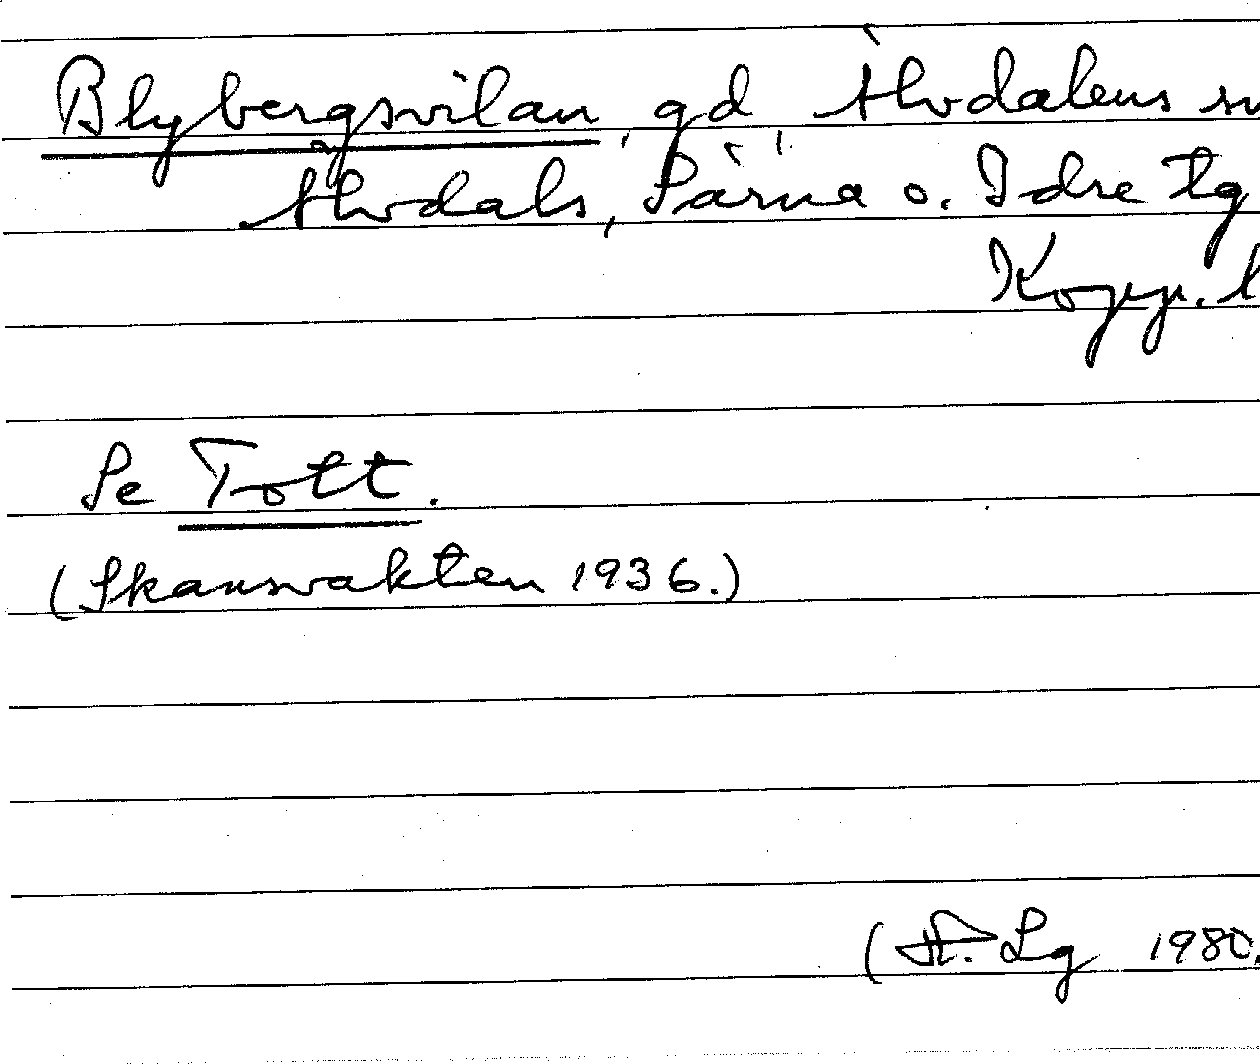 Blybergsvilan, gd Älvdalens sn
Älvdals, Särna o. Idre tg
Kopp. l
Se Tott.
(Skansvakten 1936.)
Lg 1980.